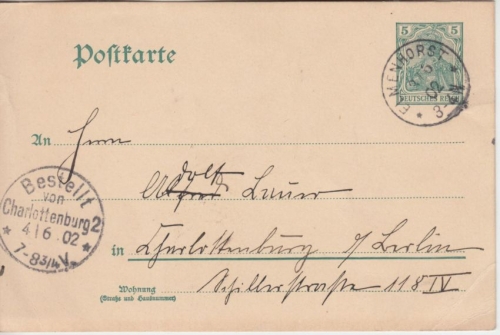 Postkarte
5 5
DEUTSCHES REICH
ELMENHORST
02
3-4N
An Herrn
Adolf
Alfred Lauer
Bestellt
von
Charlottenburg 2
4 | 6 02
7-8 3/4 V.
in Charlottenburg b/Berlin
Schillerstraße 118 IV
Wohnung
(Straße und Hausnummer)